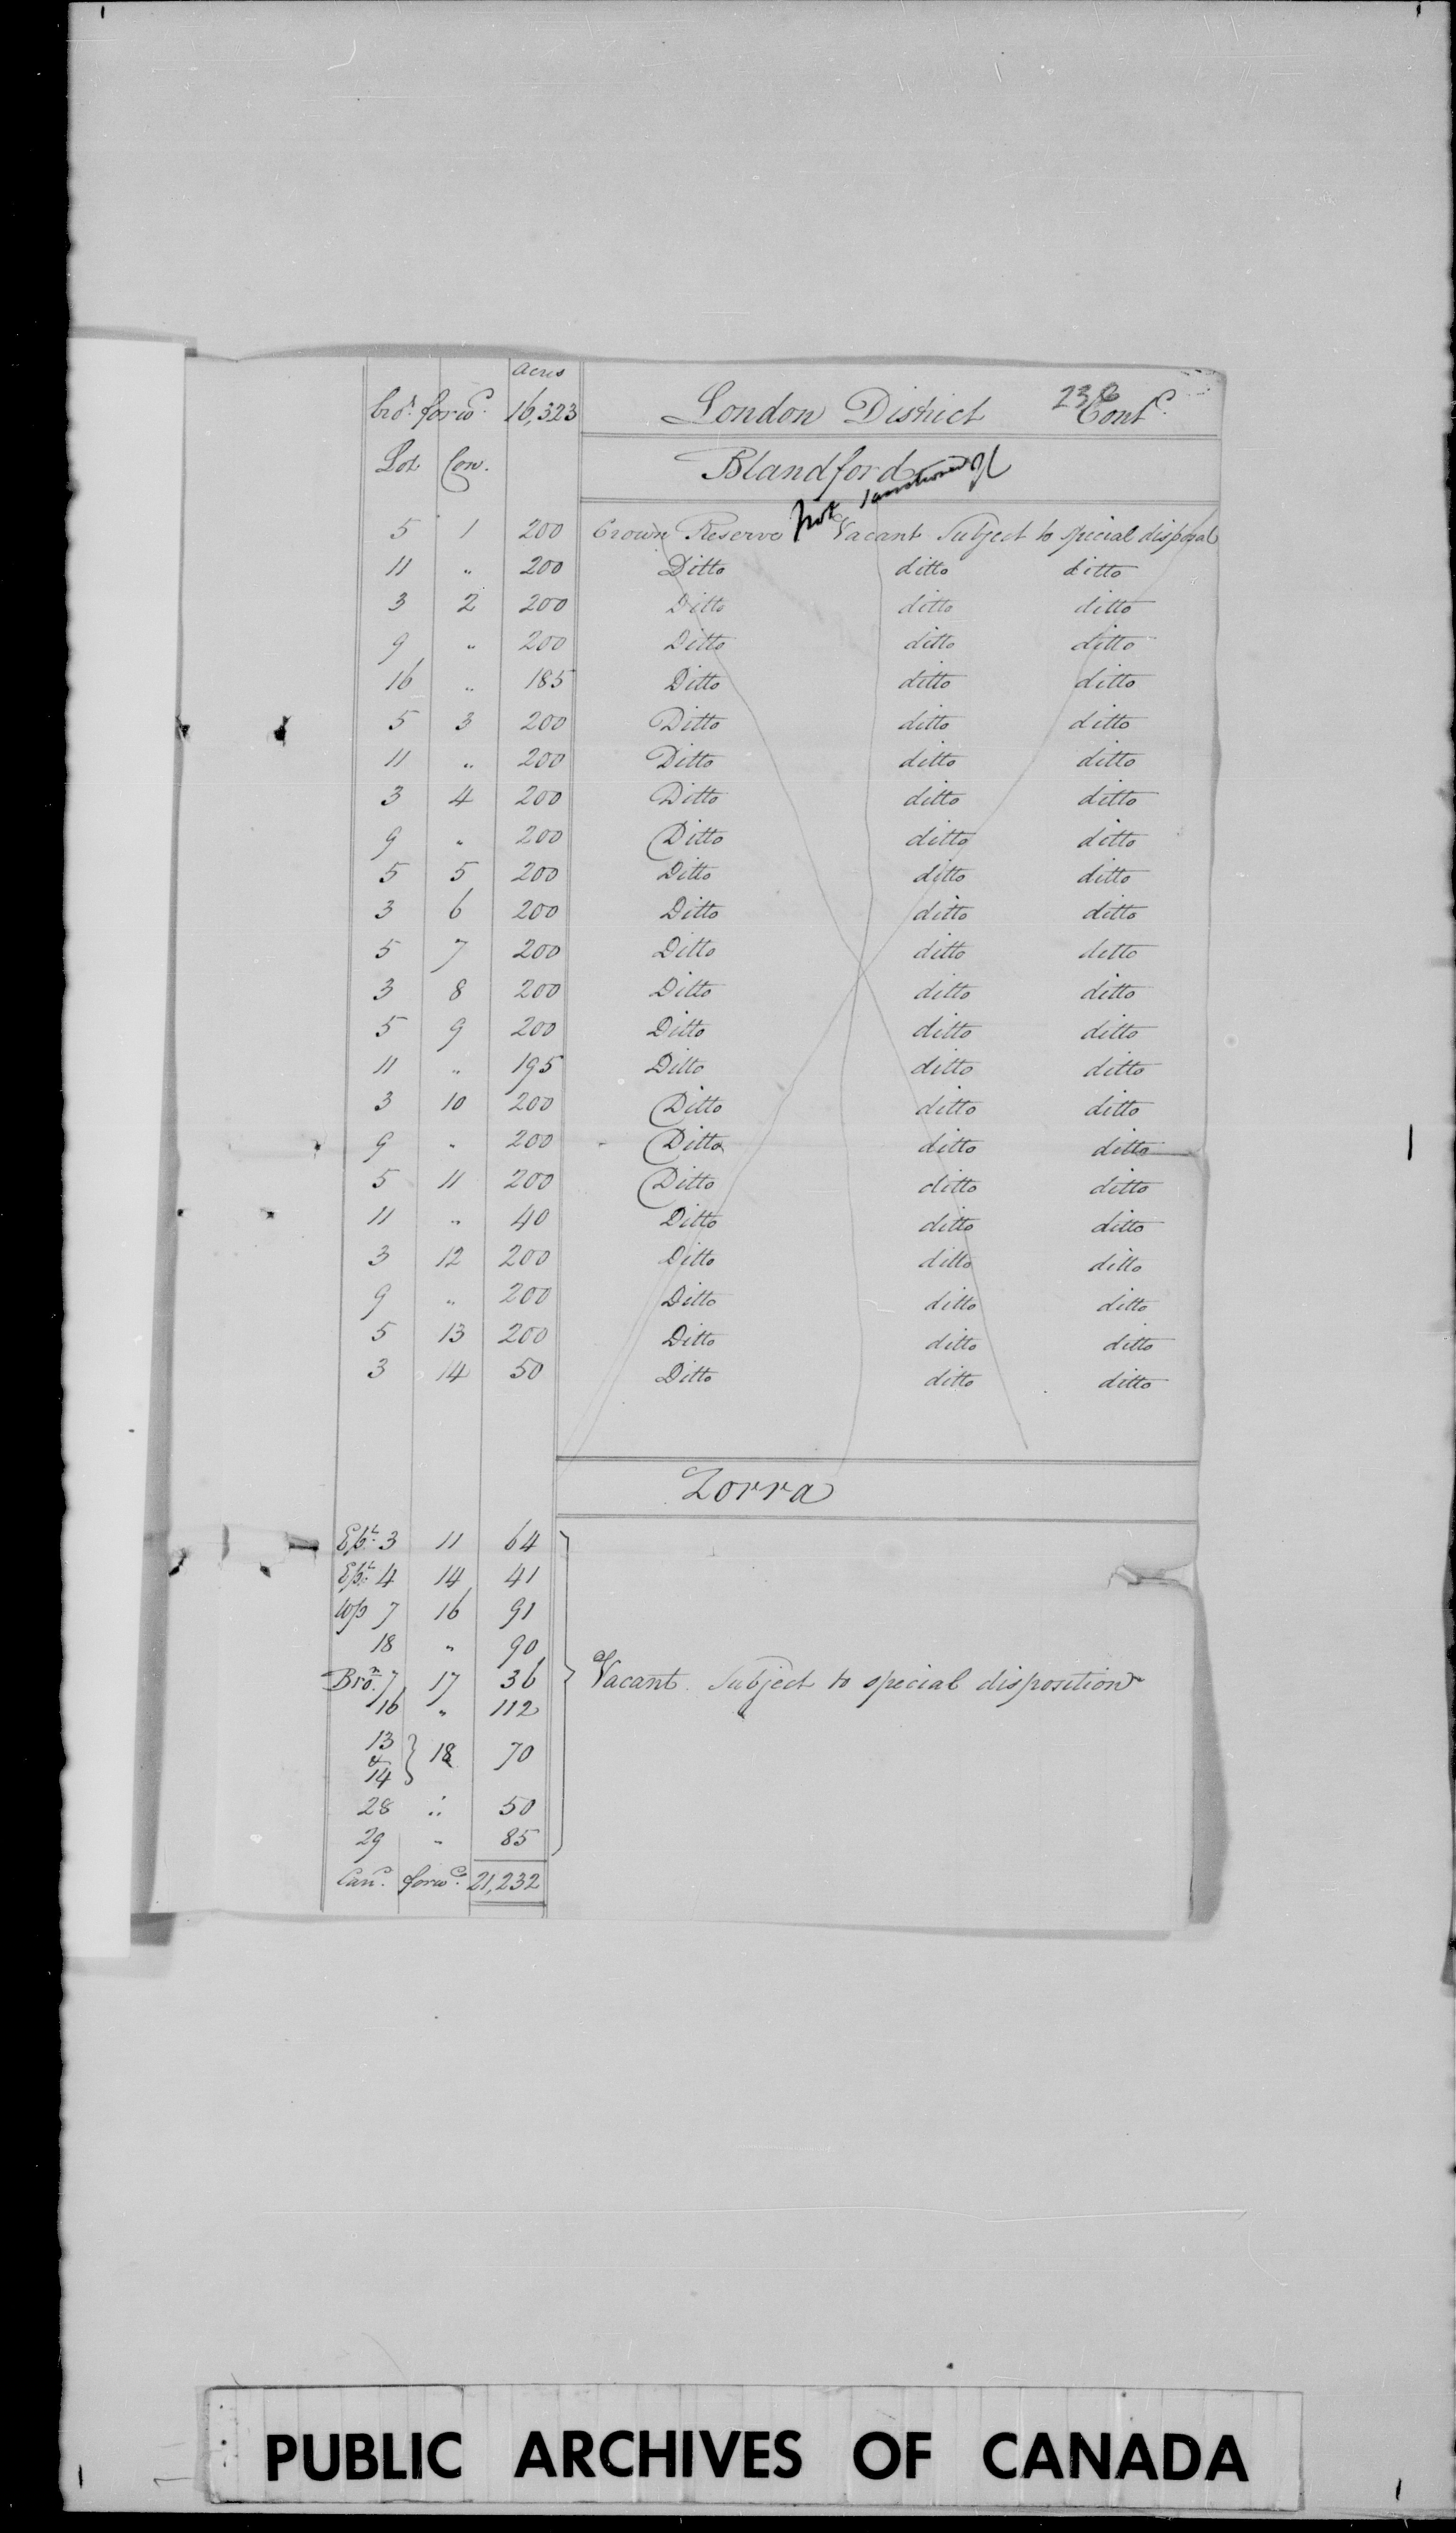 acres
bro.t forw.d 16,323 London District Cont.d 236
Lot Con. Blandford
not sanctioned
5 1 200 Crown Reserve Vacant Subject to special disposal
11 " 200 Ditto ditto ditto
3 2 200 Ditto ditto ditto
9 " 200 Ditto ditto ditto
16 " 185 Ditto ditto ditto
5 3 200 Ditto ditto ditto
11 " 200 Ditto ditto ditto
3 4 200 Ditto ditto ditto
9 " 200 Ditto ditto ditto
5 5 200 Ditto ditto ditto
3 6 200 Ditto ditto ditto
5 7 200 Ditto ditto ditto
3 8 200 Ditto ditto ditto
5 9 200 Ditto ditto ditto
11 " 195 Ditto ditto ditto
3 10 200 Ditto ditto ditto
9 " 200 Ditto ditto ditto
5 11 200 Ditto ditto ditto
11 " 40 Ditto ditto ditto
3 12 200 Ditto ditto ditto
9 " 200 Ditto ditto ditto
5 13 200 Ditto ditto ditto
3 14 50 Ditto ditto ditto
Zorra
E.pt 3 11 64
E.pt 4 14 41
W.p 7 16 91
18 " 90
Bro.n 7 17 36 Vacant. Subject to special disposition
16 " 112
13 & 14 } 18 70
28 " 50
29 " 85
Car.d forw.d 21,232
PUBLIC ARCHIVES OF CANADA